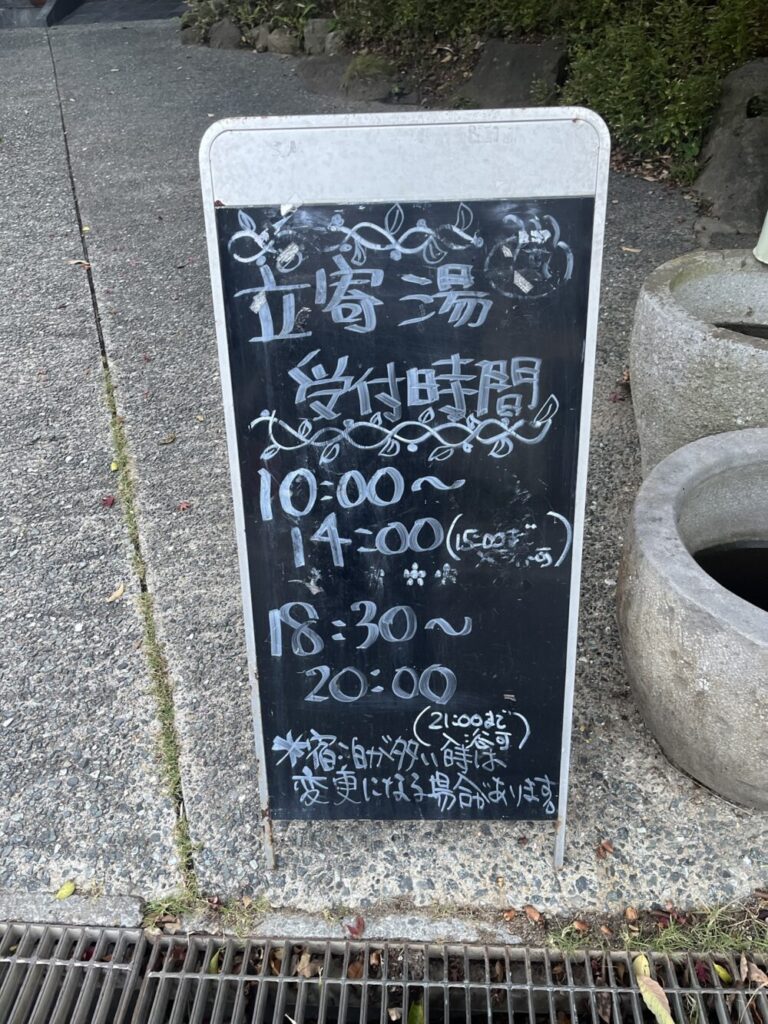 立寄湯
受付時間
10:00〜
14:00(15:00まで
可)
18:30〜
20:00
(21:00まで
入浴可)
*宿泊が多い時は
変更になる場合があります